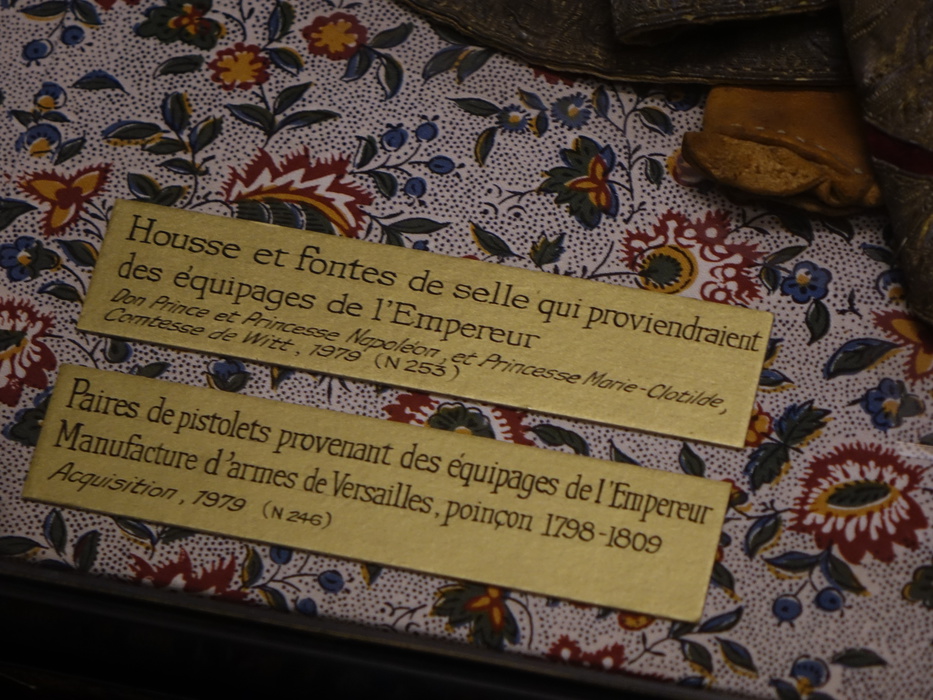 Housse et fontes de selle qui proviendraient
des équipages de l'Empereur
Don Prince et Princesse Napoléon, et Princesse Marie-Clotilde,
Comtesse de Witt, 1979 (N 253)
Paires de pistolets provenant des équipages de l'Empereur
Manufacture d'armes de Versailles, poinçon 1798-1809
Acquisition, 1979 (N 246)